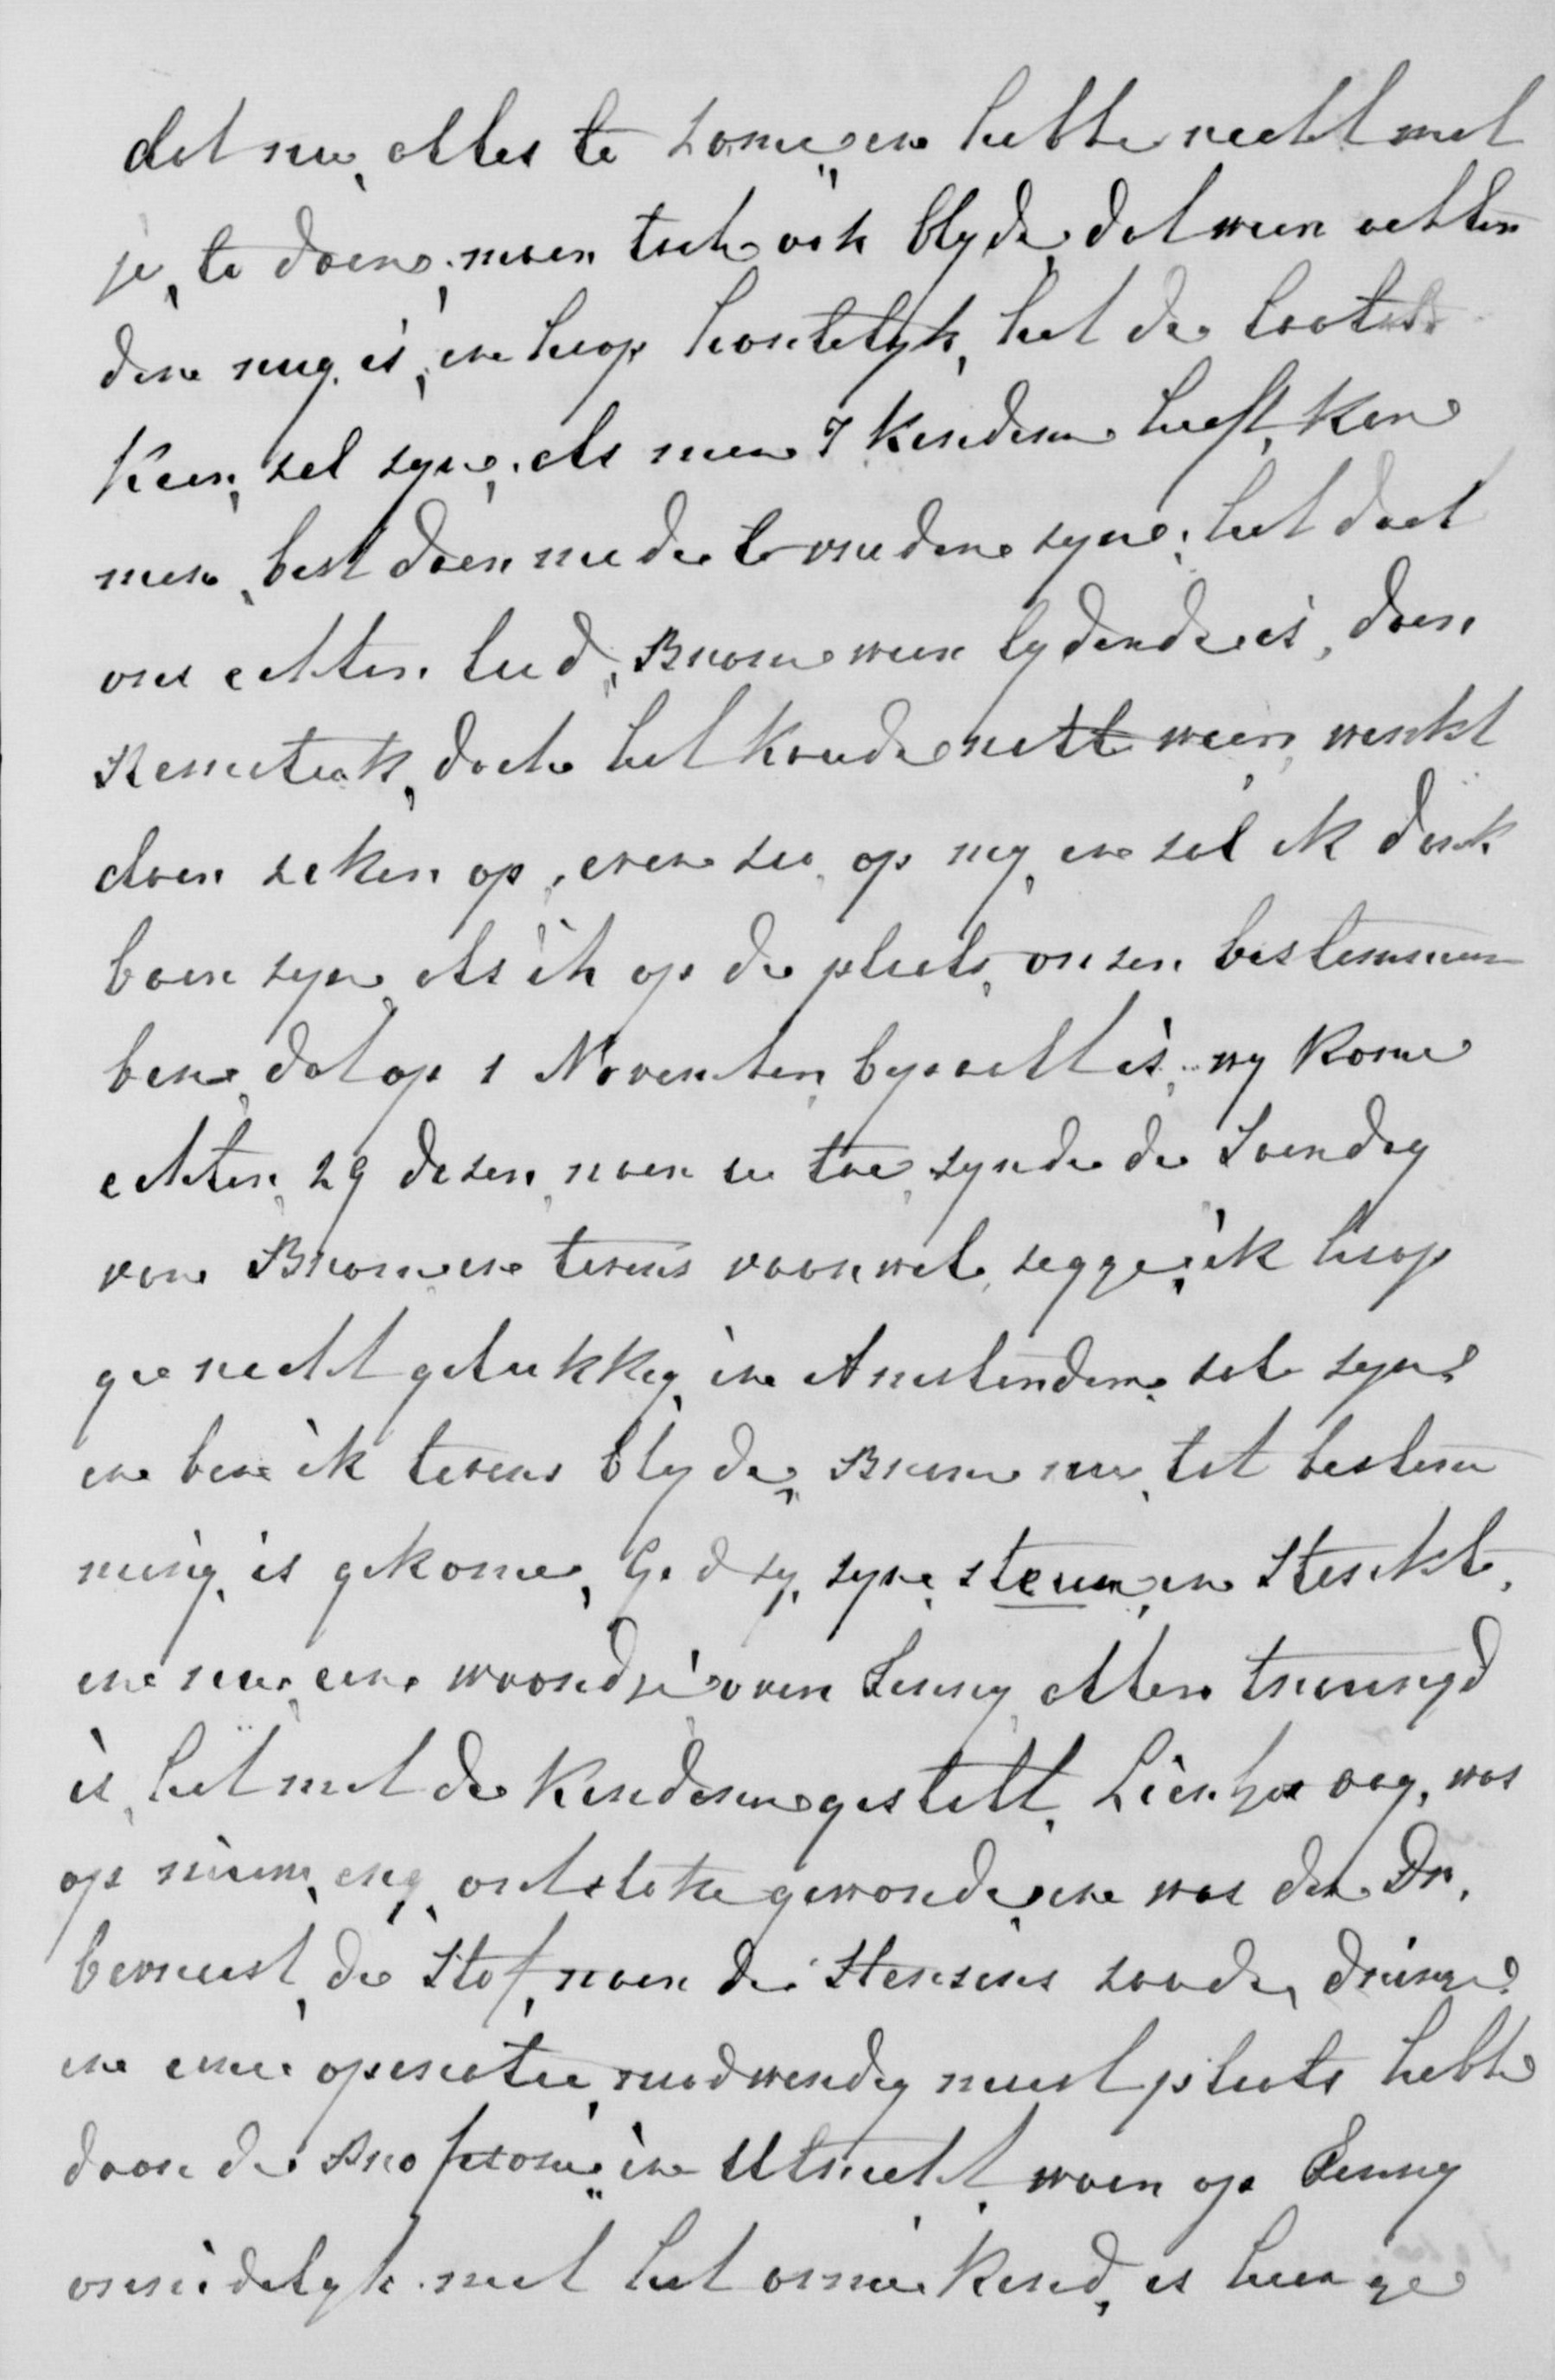 dat nu, alles te zame, en hebbe recht met
je, te doen, maar toch ook blyde, dat weer achter
den rug. is, en hoop hartelyk, het de laatste
Keer, zal zyn, als men 7 Kindere heeft, Kan
men, best daar mede te vrede zyn, het doet
ons echter leed, Bram weer lydende is, aan
Rematiek, doch het koude natte weer, werkt
daar zeker op, even zoo, op my, en zal ik dank
baar zyn, als ik op de plaats, onzer bestemming
ben, dat op 1 November, bepaalt is, wy kome
echter, 29 dezer, naar u toe, zynde de Zondag
van Bram en tevens vaarwel, zegge, ik hoop
ge recht gelukkig, in Amsterdam, zal zyn
en ben ik tevens blyde, Bram nu, tot bestem
ming, is gekome, God zy, zyn, steun, en Sterkte,
en nu, een woordje over Jenny, aller treurigst
is, het met de Kindere gestelt, Lientjes oog, was
op nieuw, erg, ontstoke geworde, en was de Dr,
bevreest, de Stof, naar de Hersens zoude, dringe
en eene operatie, noodwendig moest plaats hebbe
door de Profesore, in Utrecht, waar op Jenny
onmidelyk met het arme Kind, is heen ge